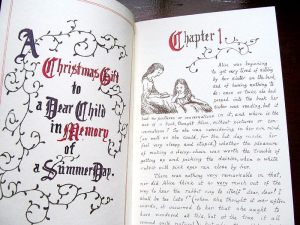 A
Christmas Gift
to
a Dear Child
in Memory
of
a Summer Day.
Chapter I.
Alice was beginning
to get very tired of sitting
by her sister on the bank,
and of having nothing to
do: once or twice she had
peeped into the book her
sister was reading, but it
had no pictures or conversations in it, and where is the
use of a book, thought Alice, without pictures or con-
versations? So she was considering in her own mind,
(as well as she could, for the hot day made her
feel very sleepy and stupid,) whether the pleasure
of making a daisy-chain was worth the trouble of
getting up and picking the daisies, when a white
rabbit with pink eyes ran close by her.
There was nothing very remarkable in that,
nor did Alice think it so very much out of the
way to hear the rabbit say to itself "dear, dear! I
shall be too late!" (when she thought it over after-
wards, it occurred to her that she ought to
have wondered at this, but at the time it all